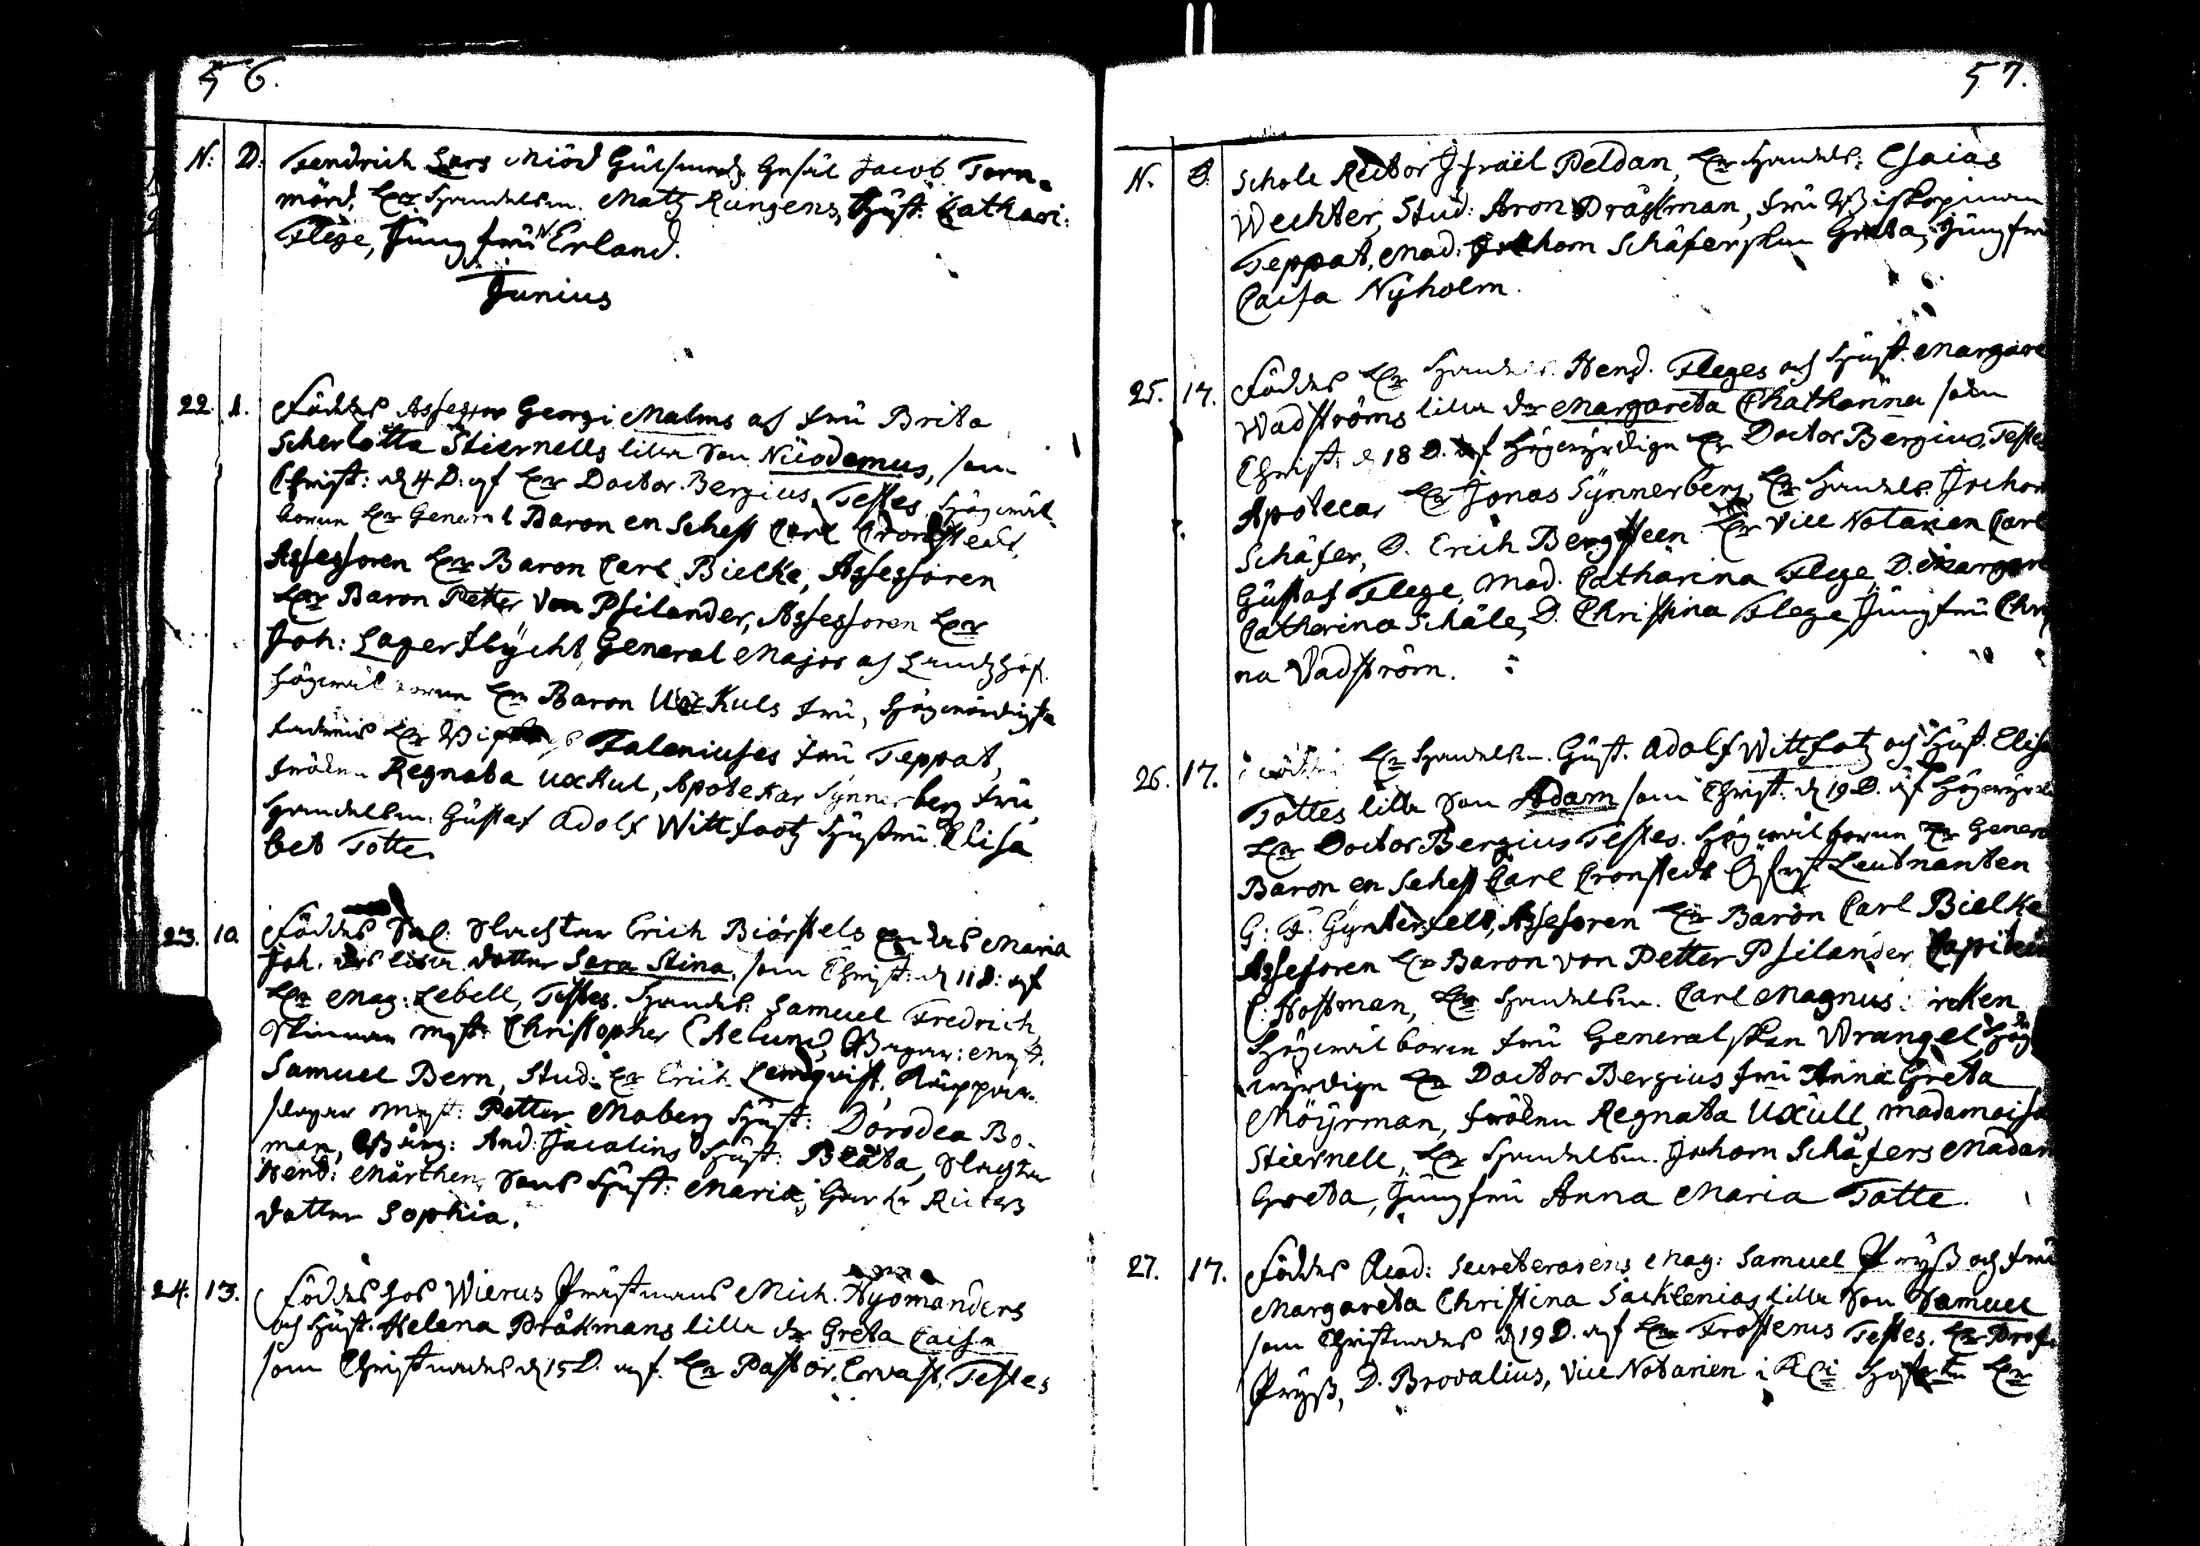 56.
N: D: Fendrich Lars Miöd Gulsmed Gesäl Jacob Torn-
mörd, Hr Handelsm. Matz Rungens, Hust. Cathari:
Flege, Jungfru Erland.
Junius
22. 1. Föddes Assessor Georgi Malms och fru Brita
Scherlotta Stiernells lilla Son Nicodemus, som
Christ: d 4 D: af Hr Doctor Bergius, Testes Högwäl-
borne Hr General Baron en Scheff Carl Cronstedt,
Assessoren Hr Baron Carl Bielke, Assessoren
Hr Baron Petter von Psilander, Assessoren Hr
Joh: Lagerflycht, General Major och Landzhöf.
Högwälborne Hr Baron Uxkuls fru, Högwördigste
fadrens Hr Faleniuses fru Teppat,
fröken Regnata Uxkul, Apotekar Synnerberg fru,
Handelsm: Gustaf Adolf Wittfootz Hustru Elisa
bet Totte.
23. 10. Föddes Sal. Slachtar Erich Biörstels Maria
Joh. lilla dotter Sara Stina, som Christ: d 11 D: af
Hr Mag: Lebell, Testes. Handels: Samuel Fredrich
Mest: Christopher Bagar: Mest.
Samuel Bern, Stud: Hr Erich Lemqvist,
slagar Mest: Petter Moberg Hust: Dorodea Bo-
man, And: Jacolins Hust: Beata,
Hend: Mårthens Hust: Maria,
dotter Sophia.
24. 13. Föddes hos Wierus Prästmans Mich. Nyomanders
och Hust. Helena Dråkmans lilla dr Greta Caisa
som Christnades d 15 D. af Hr Pastor Ervast, Testes
57.
N. D. Schole Rector Israël Peldan, Hr Handels: Esaias
Wechter, Stud: Aron Dråkman, fru Biskopinnan
Teppat, Mad: Jochom Schäferskan Greta, Jungfru
Caisa Nyholm.
25. 17. Föddes Hr Handels. Hend. Fleges och Hust. Margare
Wadströms lilla dr Margareta Chatharina som
Christ: d 18 D. af Högwyrdige Hr Doctor Bergius, Testes
Apotecar Hr Jonas Synnerberg, Hr Handels. Jochom
Schäfer, D. Erich Bergsteen Hr Vice Notarien Carl
Gustaf Flege, Mad. Catharina Flege, D. Margare
Catharina Schäle, D. Christina Flege Jungfru Chri
na Vadström.
26. 17. Föddes Hr Handelsm. Gust. Adolf Wittfotz och Hust. Elisa
Tottes lilla Son Adam som Christ. d 19 D. af Högwyrdi
Hr Doctor Bergius Testes. Högwälborne Hr General
Baron en Scheff Carl Cronstedt Öfwst Leutnanten
G: F. Gynterfelt, Assesoren Hr Baron Carl Bielke
Assesoren Hr Baron von Petter Psilander, Capitein
C. Hostman, Hr Handelsm. Carl Magnus
Högwälborne fru Generalskan Wrangel, Hög
wyrdige Hr Doctor Bergius fru Anna Greta
Möyrman, fröken Regnata Uxull, Madamoisel
Stiernell, Hr Handelsm. Jochom Schäfers Madam
Greta, Jungfru Anna Maria Totte.
27. 17. Föddes Acad: Secreterarens Mag: Samuel Pryss och fru
Margareta Christina Sacklenias lilla Son Samuel
som Christnades d 19 D. af Hr Frosterus Testes. Hr Prof.
Pryss, D. Brovalius, Vice Notarien i Hr